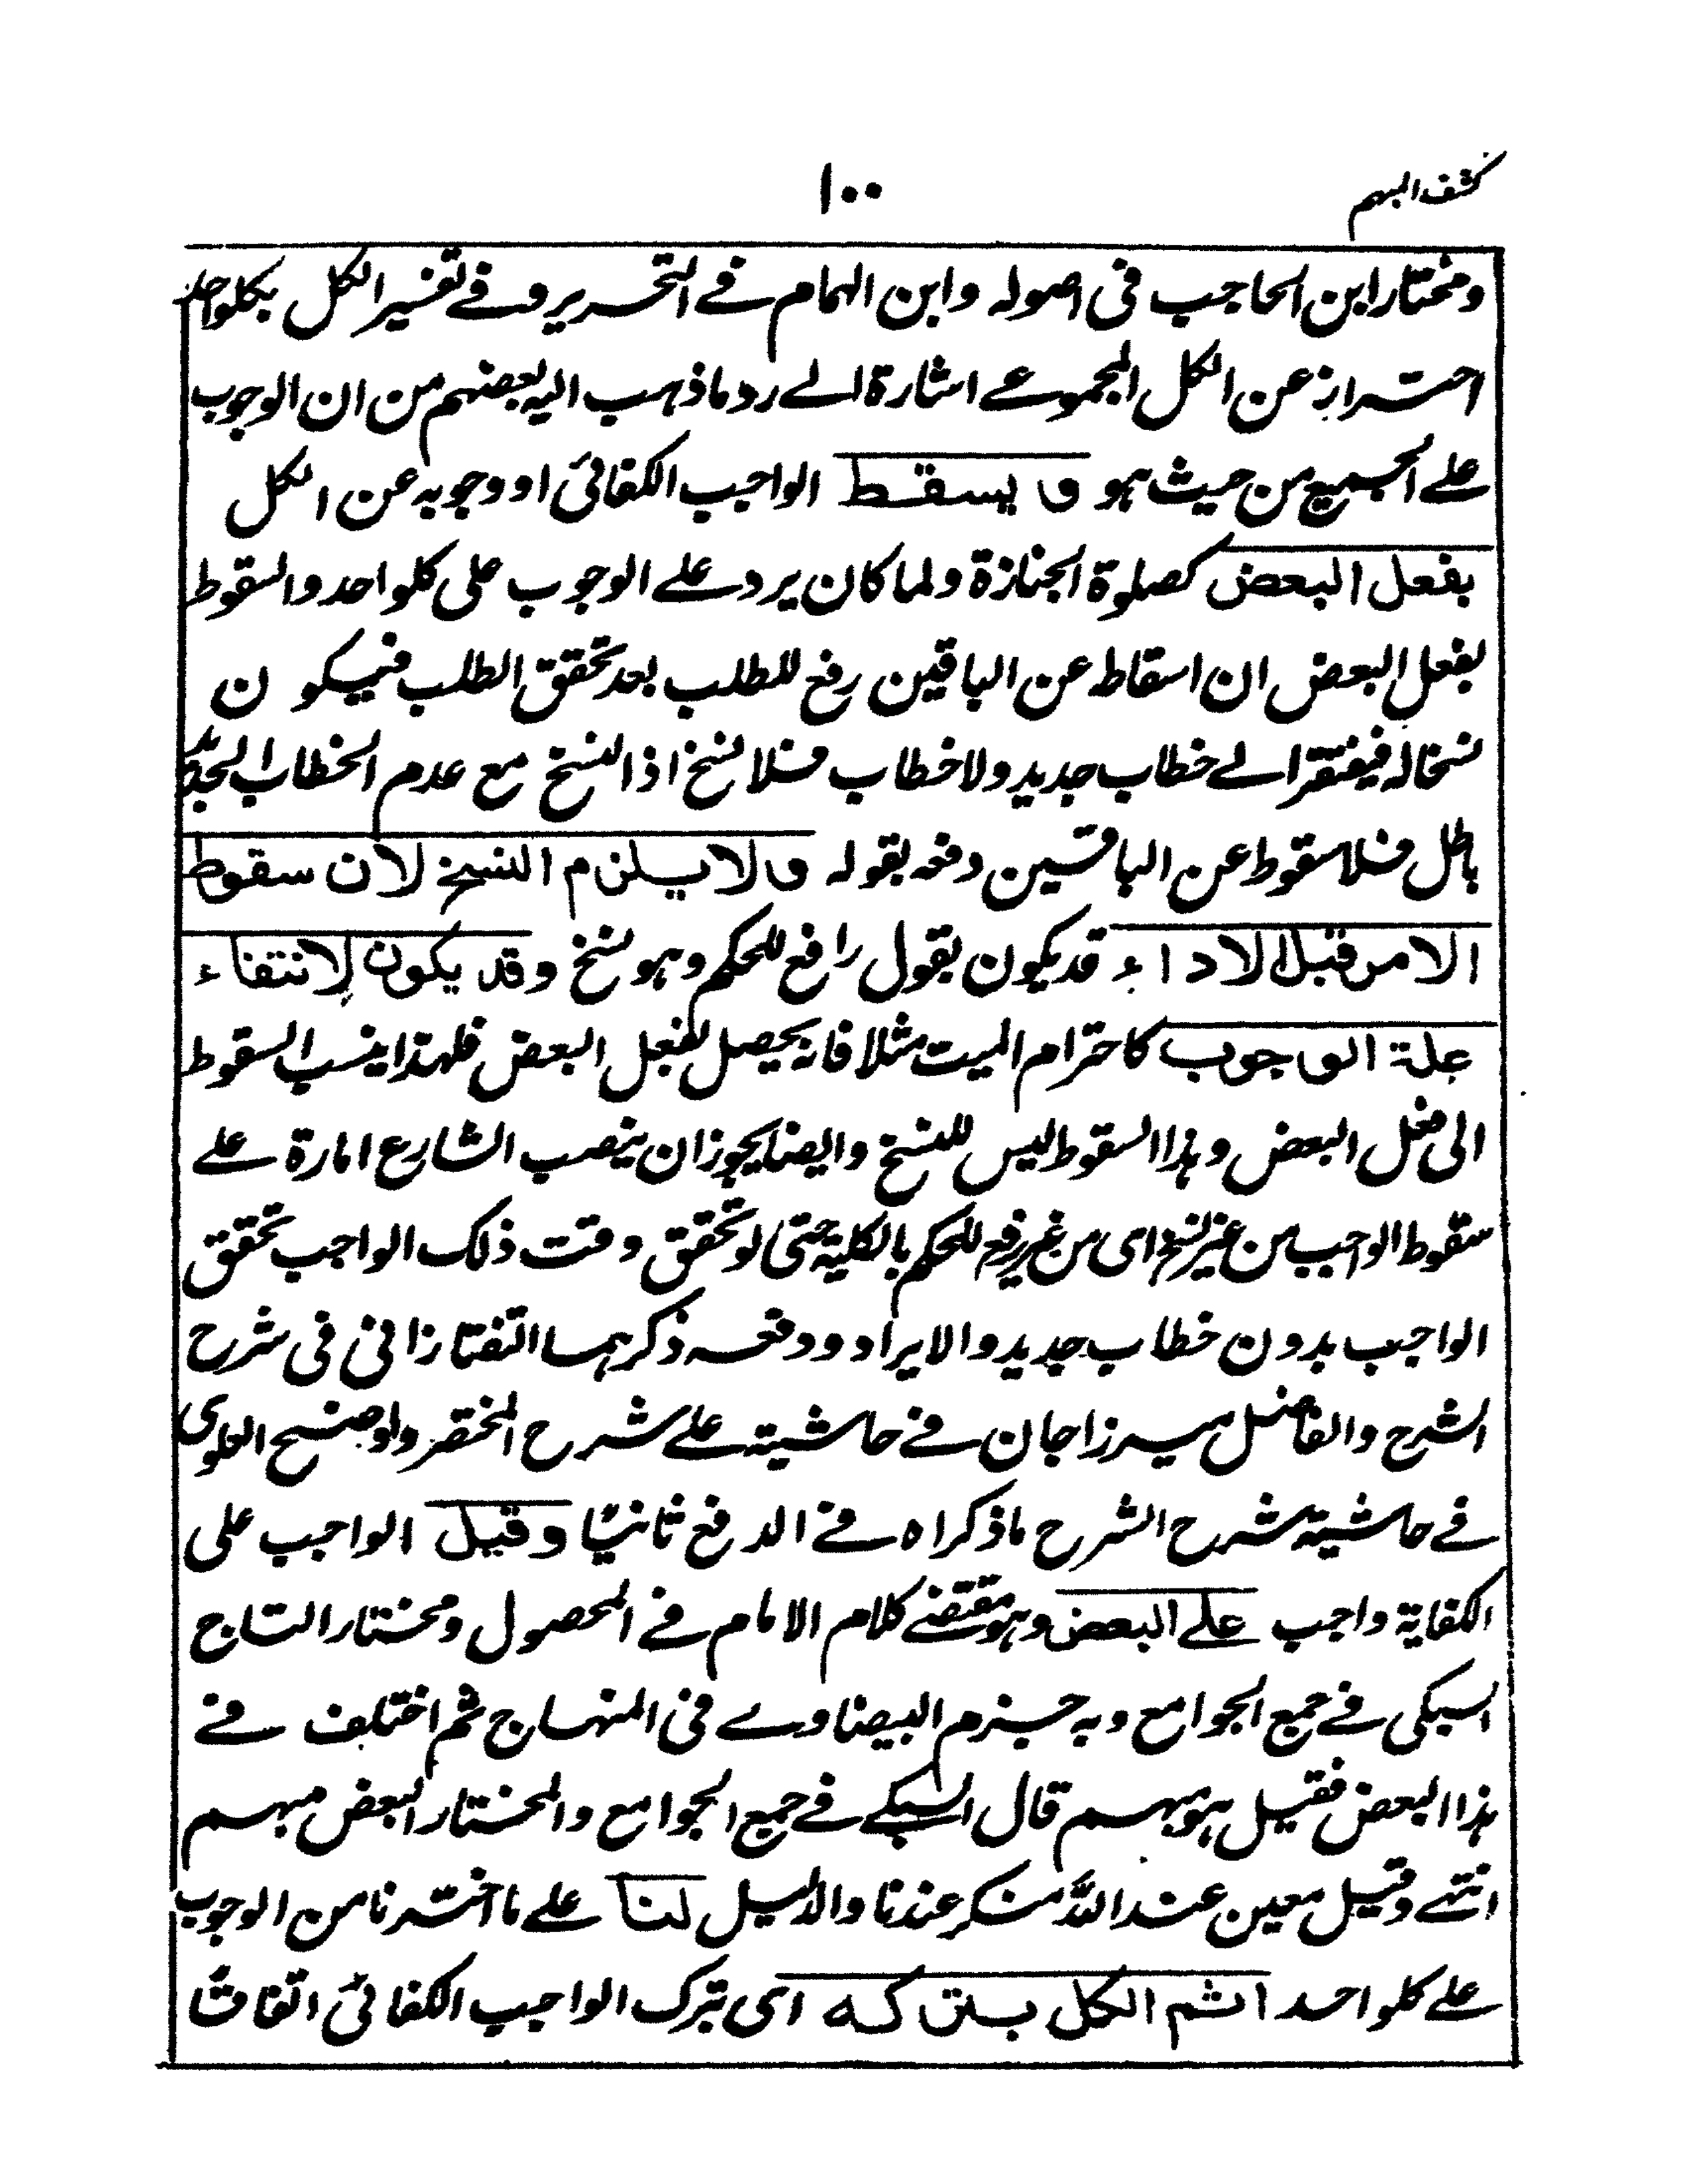 كشف المبهم
١٠٠
ومختار ابن الحاجب فى اصوله وابن الهمام فے التحرير وفے تفسير الكل بكلواحد
احتراز عن الكل المجموعے اشارة الے رد ما ذهب اليه بعضهم من ان الوجوب
علے الجميع من حيث هو ويسقط الواجب الكفائى او وجوبه عن الكل
بفعل البعض كصلوة الجنازة ولما كان يرد علے الوجوب على كلواحد والسقوط
بفعل البعض ان اسقاطه عن الباقين رفع للطلب بعد تحقق الطلب فيكون
نسخا له فيفتقر الے خطاب جديد ولا خطاب فلا نسخ اذ النسخ مع عدم الخطاب الجديد
باطل فلا سقوط عن الباقين دفعه بقوله ولا يلزم النسخ لان سقوط
الامر قبل الاداء قد يكون بقول رافع للحكم وهو نسخ وقد يكون لانتفاء
علة الوجوب كاحترام الميت مثلا فانه يحصل بفعل البعض فلهذا ينسب السقوط
الى فعل البعض وهذا السقوط ليس للنسخ وايضا يجوز ان ينصب الشارع امارة علے
سقوط الواجب من غير نسخ اى من غير رفع للحكم بالكلية حتى لو تحقق وقت ذلك الواجب تحقق
الواجب بدون خطاب جديد والايراد ودفعه ذكرهما التفتازانى فى شرح
الشرح والفاضل ميرزاجان فے حاشيته علے شرح المختصر واوضح العلوى
فے حاشية شرح الشرح ما ذكراه فے الدفع ثانيًا وقيل الواجب على
الكفاية واجب علے البعض وهو مقتضے كلام الامام فے المحصول ومختار التاج
السبكى فے جمع الجوامع وبه جزم البيضاوے فى المنهاج ثم اختلف فے
هذا البعض فقيل هو مبهم قال السبكے فے جمع الجوامع والمختار البعض مبهم
انتهے وقيل معين عند اللّه منكر عندنا والدليل لنا علے ما اخترنا من الوجوب
علے كلواحد اثم الكل بتركه اى بترك الواجب الكفائى اتفاقًا